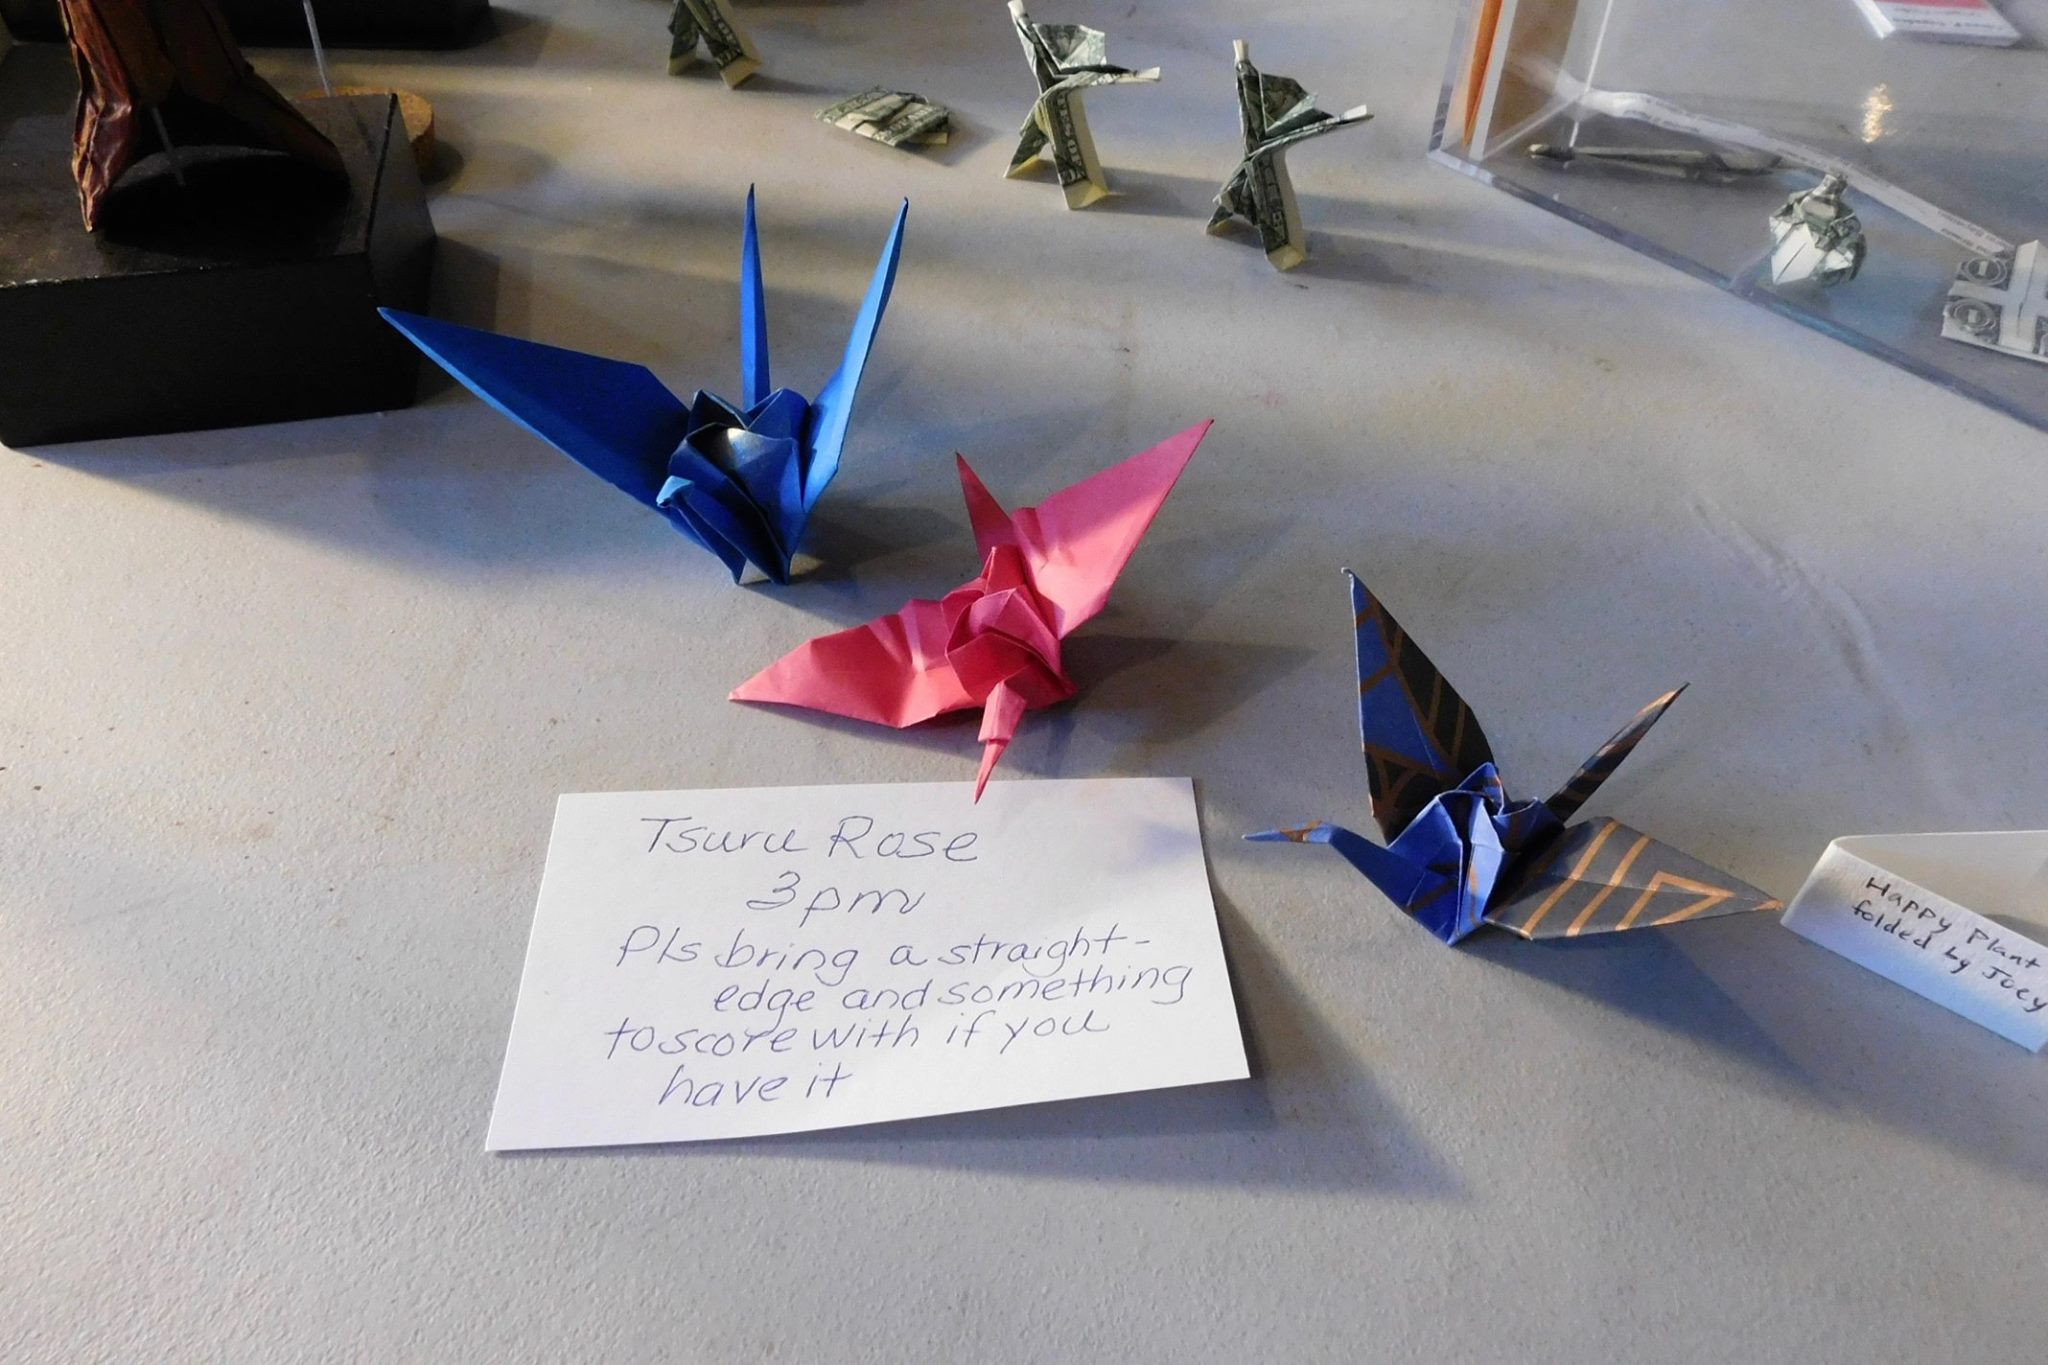 Tsuru Rose
3pm
Pls bring a straight-
edge and something
to score with if you
have it
Happy Plant
folded by Joey